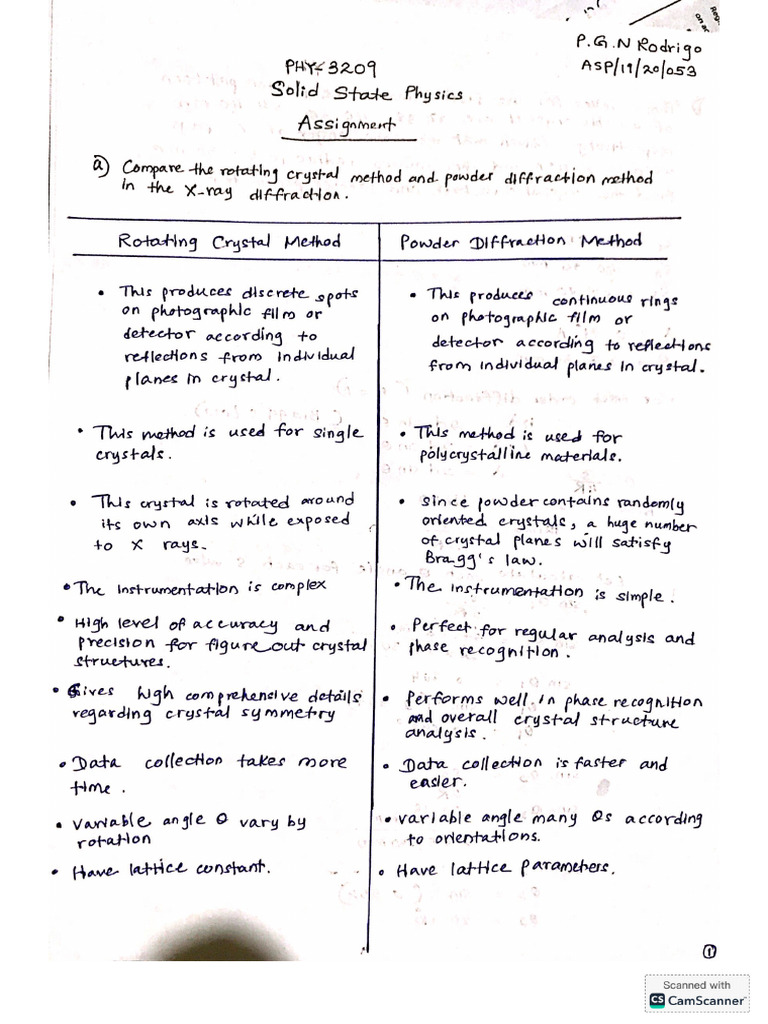 P.G.N Rodrigo
ASP/19/20/053
PHY 3209
Solid State Physics.
Assignment
a) Compare the rotating crystal method and powder diffraction method
in the X-ray diffraction.
Rotating Crystal Method
• This produces discrete spots
on photographic film or
detector according to
reflections from individual
planes in crystal.
• This method is used for single
crystals.
• This crystal is rotated around
its own axis while exposed
to X rays.
• The instrumentation is complex
• High level of accuracy and
precision for figure out crystal
structures.
• Gives high comprehensive details
regarding crystal symmetry
• Data collection takes more
time.
• variable angle θ vary by
rotation
• Have lattice constant.
Powder Diffraction Method
• This produces continuous rings
on photographic film or
detector according to reflections
from individual planes in crystal.
• This method is used for
polycrystalline materials.
• Since powder contains randomly
oriented crystals, a huge number
of crystal planes will satisfy
Bragg's law.
• The instrumentation is simple.
• Perfect for regular analysis and
phase recognition.
• Performs well in phase recognition
and overall crystal structure
analysis.
• Data collection is faster and
easier.
• variable angle many θs according
to orientations.
• Have lattice parameters.
1
Scanned with
CS CamScanner